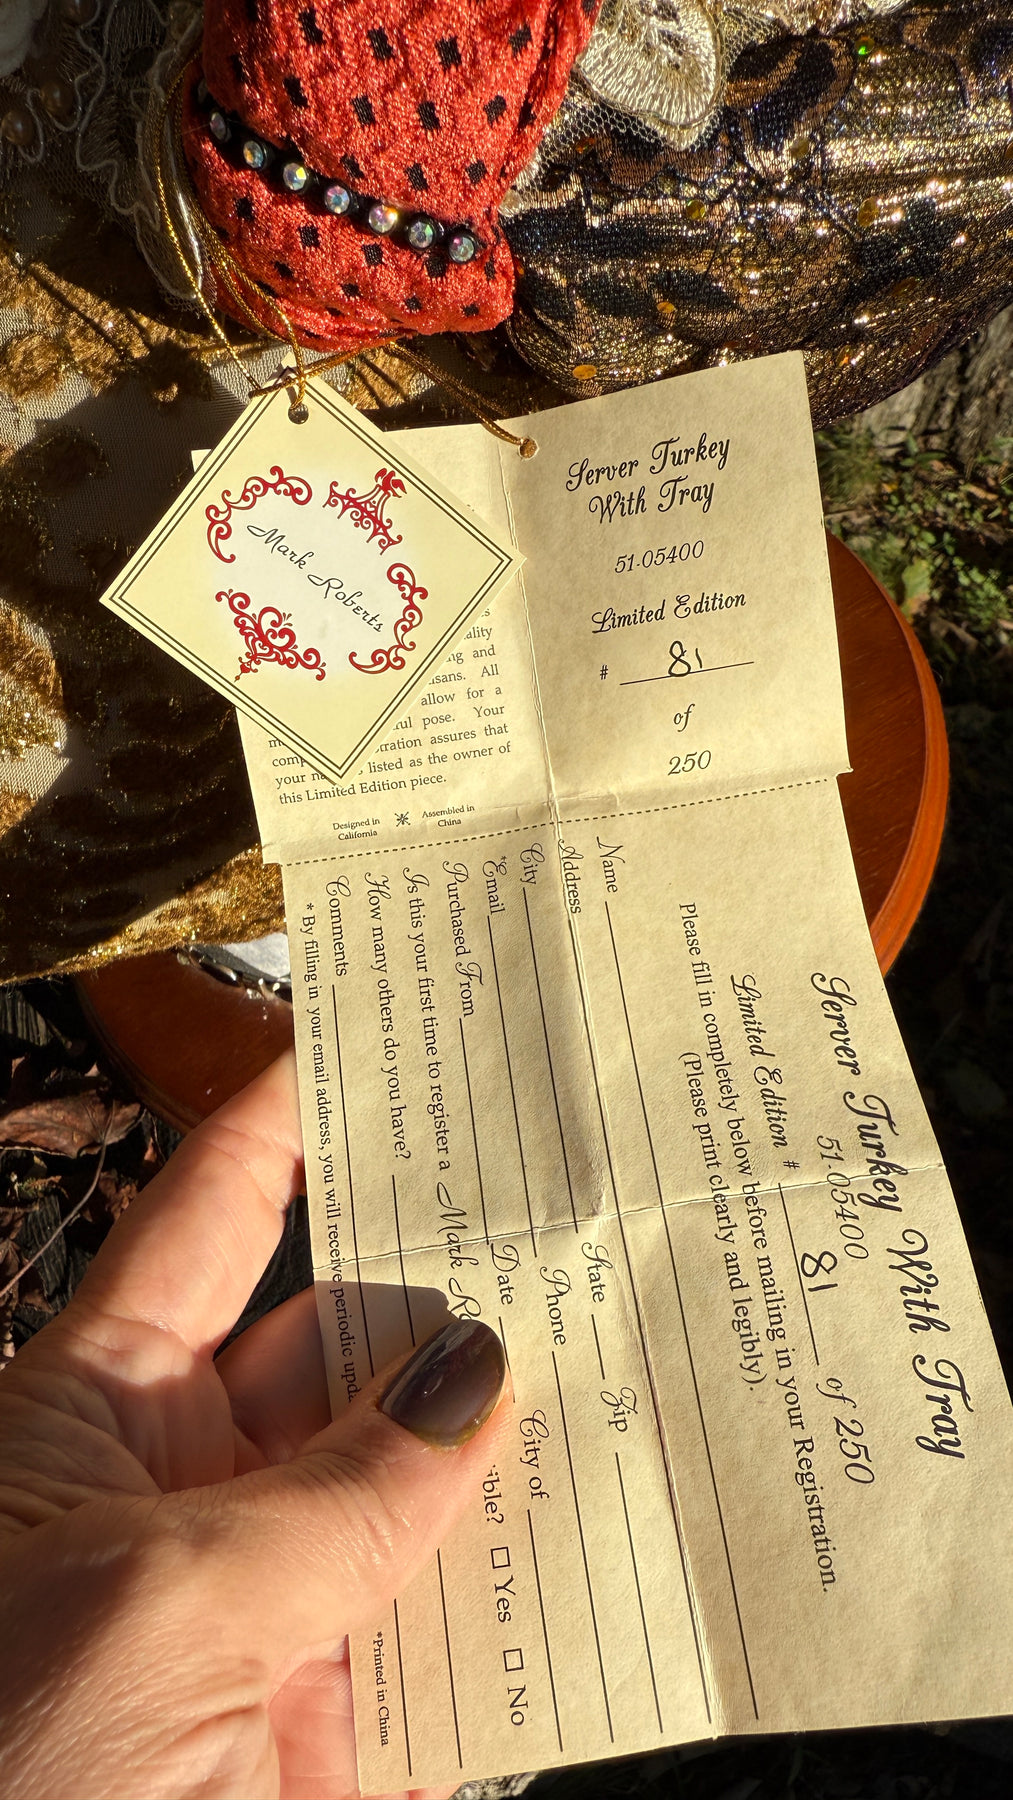 Mark Roberts
Server Turkey
With Tray
51-05400
Limited Edition
# 81
of
250
ality
and
sans. All
allow for a
pose. Your
tration assures that
your listed as the owner of
this Limited Edition piece.
Designed in
California
Assembled in
China
Server Turkey With Tray
51-05400
Limited Edition # 81 of 250
Please fill in completely below before mailing in your Registration.
(Please print clearly and legibly).
Name
Address
City State Zip
*Email Phone
Purchased From Date City of
Is this your first time to register a Mark Ro ible? □ Yes □ No
How many others do you have?
Comments
* By filling in your email address, you will receive periodic upda
*Printed in China